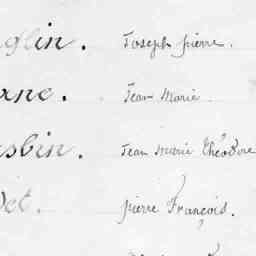 glin. Joseph pierre.
ane. Jean Marie
sbin. Jean Marie Théodore
Det. pierre François.